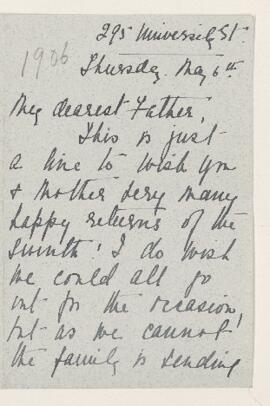 295 University St.
1906
Thursday. May 6th.
My dearest Father,
This is just
a line to wish you
& Mother very many
happy returns of the
! I do wish
we could all go
out for the occasion,
but as we cannot
the family is sending